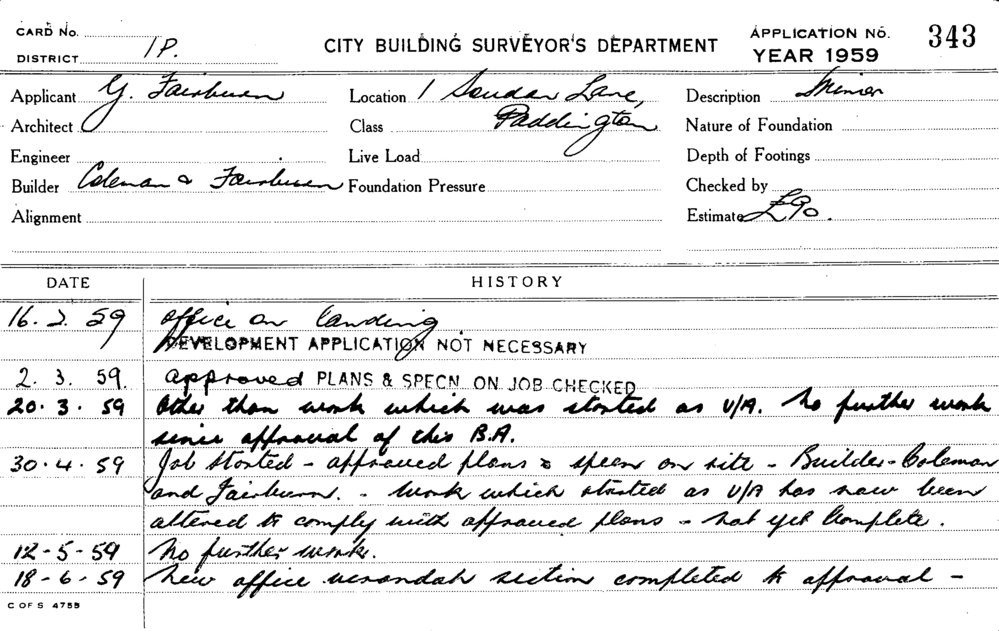 CARD No.
DISTRICT 1P.
CITY BUILDING SURVEYOR'S DEPARTMENT
APPLICATION No. 343
YEAR 1959
Applicant G. Fairburn
Location 1 Soudan Lane,
Paddington
Description Minor
Architect
Class
Nature of Foundation
Engineer
Live Load
Depth of Footings
Builder Coleman & Fairburn
Foundation Pressure
Checked by
Alignment
Estimate £90.
DATE HISTORY
16. 2. 59 Office on landing.
DEVELOPMENT APPLICATION NOT NECESSARY
2. 3. 59. approved PLANS & SPECN ON JOB CHECKED
20. 3. 59 Other than work which was started as U/A. No further work
since approval of this B.A.
30. 4. 59 Job started - approved plans & specn on site - Builder - Coleman
and Fairburn. - Work which started as U/A has now been
altered to comply with approved plans - not yet complete.
12-5-59 No further work.
18-6-59 New office verandah section completed to approval -
C OF S 4755